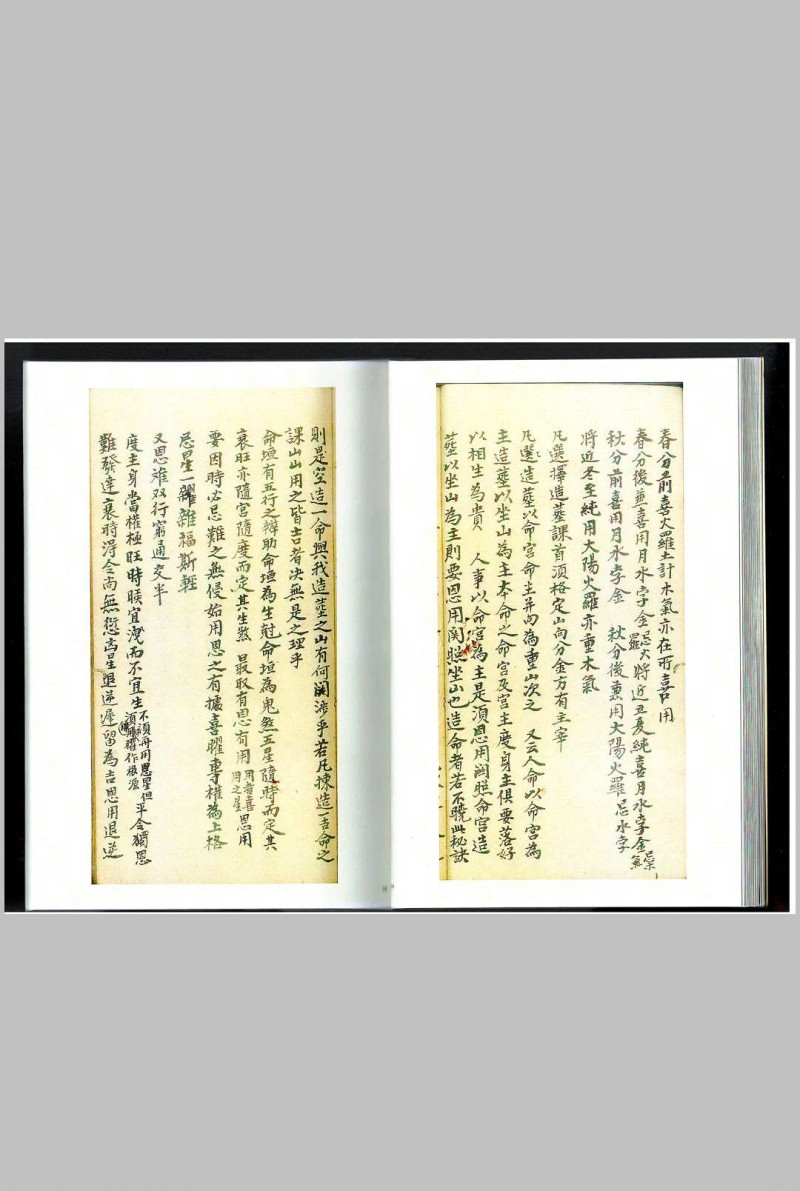 春分前喜火羅土計木氣亦在所喜用
春分後並喜用月水孛金忌火羅將近立夏純喜月水孛金忌木氣
秋分前喜用月水孛金　秋分後熏用大陽火羅忌水孛
將近冬至純用大陽火羅亦重木氣
凡選擇造葬課首須格定山向分金方有主宰
凡選造葬以命宮命主并向為重山次之　又云人命以命宮為
主造葬以坐山為主本命之命宮及宮主度身主俱要落好
以相生為貴　人事以命宮為主是須恩用関照命宮造
葬以坐山為主則要恩用関照坐山也造命者若不曉此秘訣
則是空造一命與我造葬之山有何関涉乎若凡揀造一吉命之
課山山用之皆吉者决無是之理乎
命垣有五行之辨助命垣為生尅命垣為鬼煞五星隨時而定其
衰旺亦隨宮隨度而定其生煞　最取有恩有用用者喜用之星恩用
要因時必忌難之無侵始用恩之有據喜曜專權為上格
忌星一躔雜福斯輕
又恩难双行窮通交半
度主身當權極旺時候宜洩而不宜生不須再用恩星但須用躔作根源平仝獨恩
難發達衰時淂令尚無愆吉星退逆遲留為吉恩用退逆